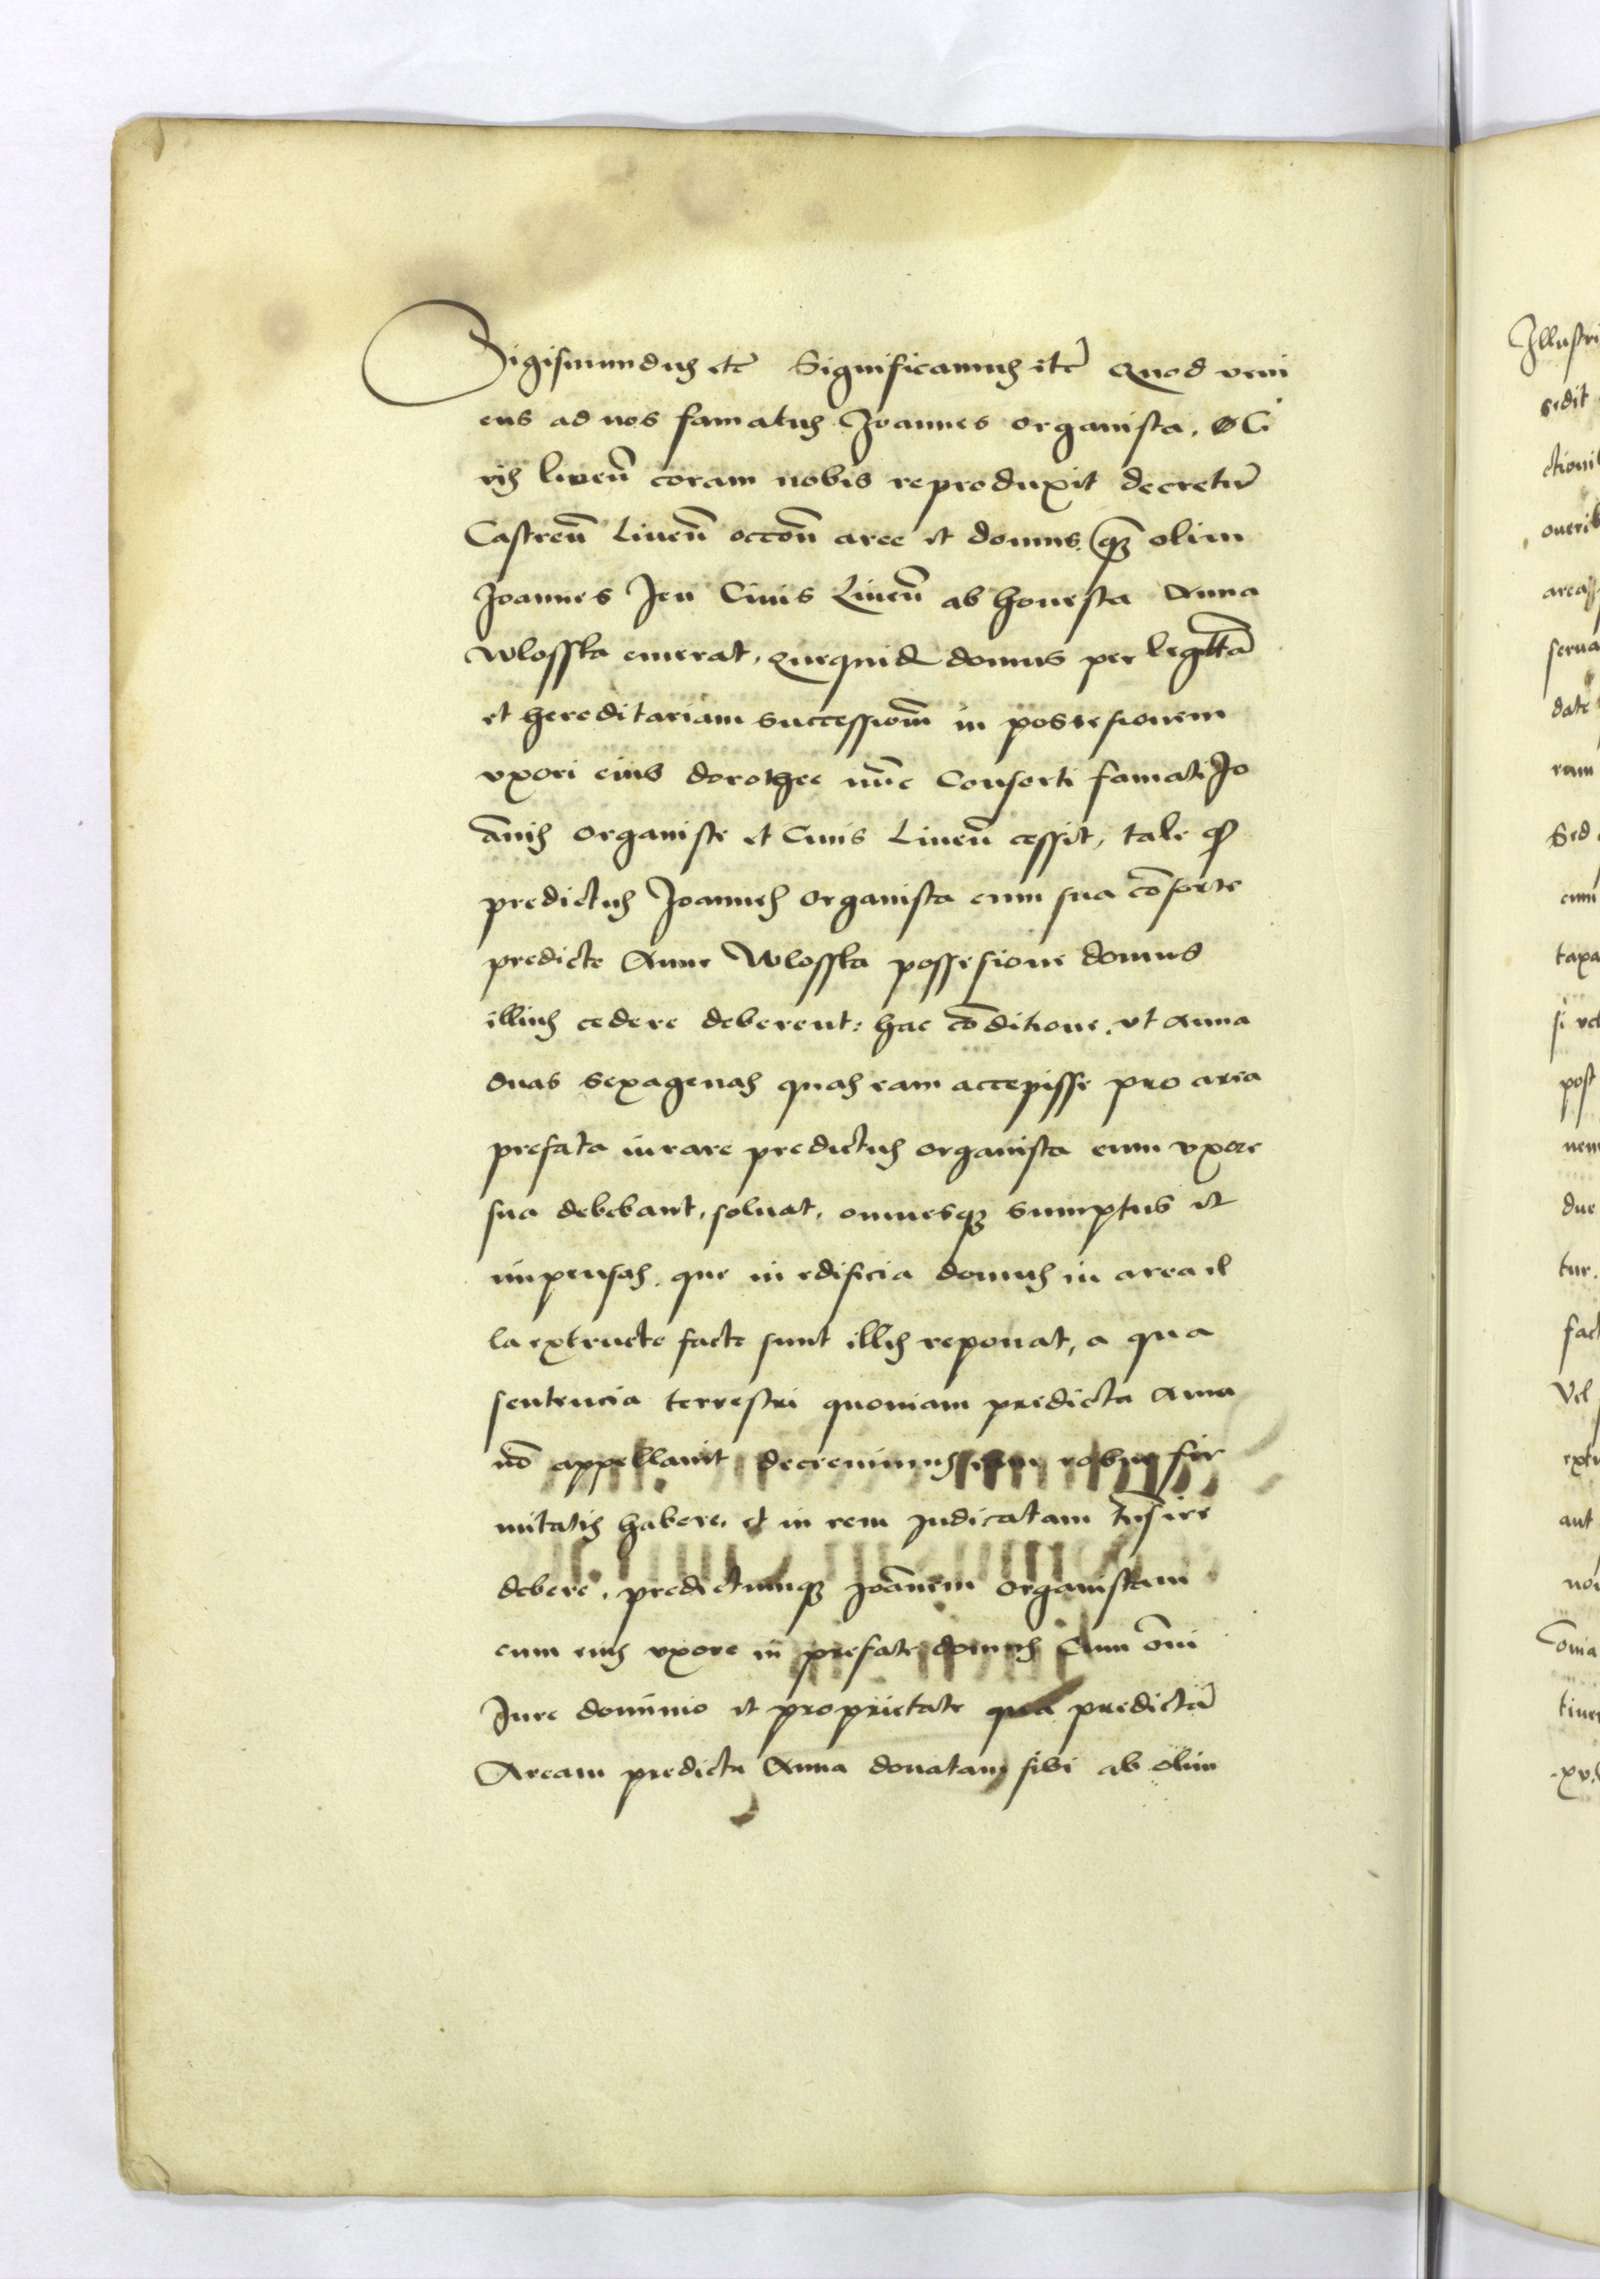 Sigismundus etc̄ Significamus etc̄ Quod veni
ens ad nos famatus Joannes organista, Ci
vis liven̄ coram nobis reproduxit decretū
Castren̄ Liven̄ occon̄ aree et domus, quā olim
Joannes Jeu Civis Liven̄ ab honesta Anna
Wlosska emerat, quequid domus per legittā
et hereditariam successionē in possesionem
vxori eius dorothee nūc Consorti famati Jo
ānis organiste et Civis Liven̄ cessit, tale qd
predictus Joannes organista cum sua cōsorte
predicte Anne Wlosska possesione domus
illius cedere deberent: hac cōditione, vt Anna
duas sexagenas quas eam accepisse pro area
prefata iurare predictus organista cum vxore
sua debebant, soluat, omnesq3 sumptus et
impensas, que in edificia domus in area il
la extructe facte sunt illis reponat, a qua
sentencia terrestri quoniam predicta Anna
nō appellauit decreuimus eam robur fir
mitatis habere, et in rem Judicatam trāsire
debere, predictumq3 Joānem organistam
cum eius vxore in prefate domus Cum ōni
Jure dominio et proprietate qua predictā
Aream predicta Anna donatam sibi ab olim
Illustri
sedit
ctioni
ouerib
areas
serua
date
ram
Sed
cum
taxa
si vel
post
nem
due
tur.
fact
Vel
extr
aut
non
Conia
tinen
.xv.